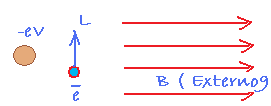 -eV
L
e
B ( Externog